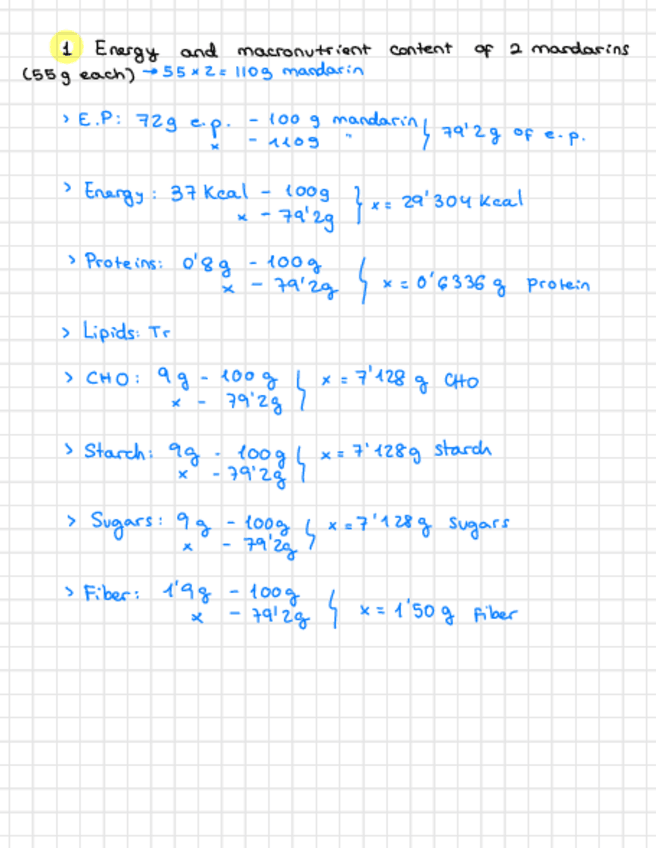 1 Energy and macronutrient content of 2 mandarins
(55g each) → 55 x 2 = 110g mandarin
> E.P: 72g e.p. - 100 g mandarin } 79'2g of e.p.
x - 110g "
> Energy: 37 Kcal - 100g } x = 29'304 Kcal
x - 79'2g
> Proteins: 0'8g - 100g } x = 0'6336 g Protein
x - 79'2g
> Lipids: Tr
> CHO: 9g - 100g } x = 7'128 g CHO
x - 79'2g
> Starch: 9g - 100g } x = 7'128g starch
x - 79'2g
> Sugars: 9g - 100g } x = 7'128g sugars
x - 79'2g
> Fiber: 1'9g - 100g } x = 1'50 g Fiber
x - 79'2g